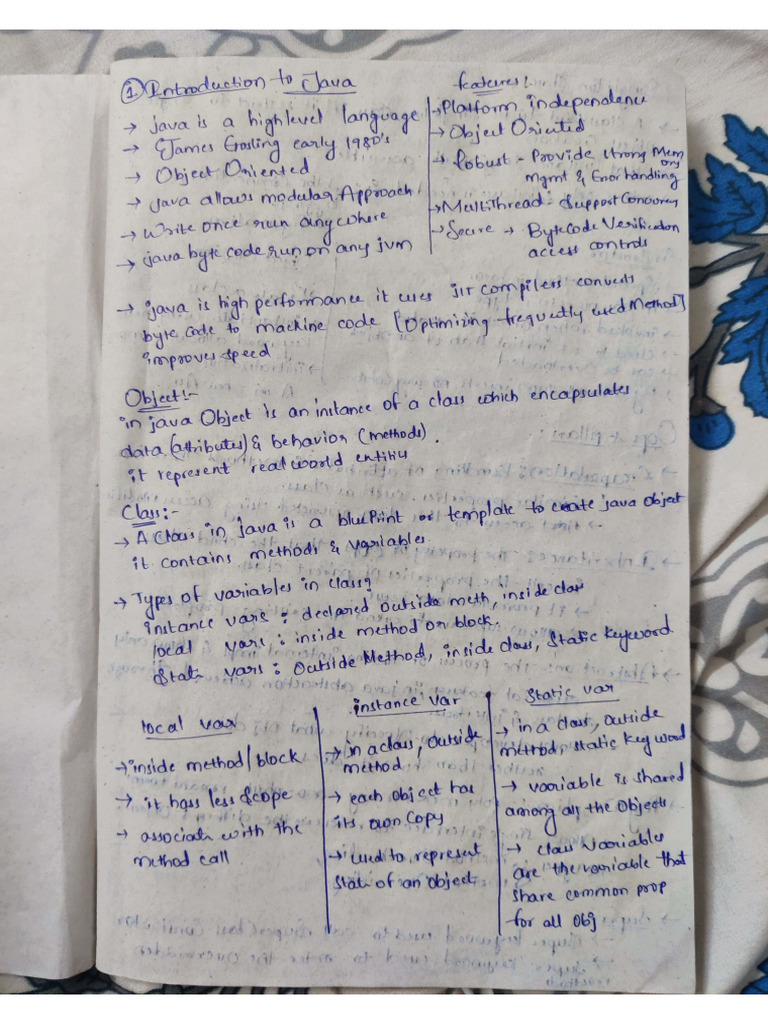 ① Introduction to Java
→ java is a high level language
→ James Gosling early 1980's
→ Object Oriented
→ java allows modular Approach
→ Write once run any where
→ java byte code run on any jvm
features:
→ Platform independence
→ Object Oriented
→ Robust - Provide strong Memory
mgmt & Error handling
→ MultiThread - Support Concurrency
→ Secure → ByteCode Verification
access controls
→ java is high performance it uses JIT compilers converts
byte code to machine code [Optimizing frequently used Method]
improves speed
Object:-
in java Object is an instance of a class which encapsulates
data (attributes) & behavior (methods).
it represent real world entity
Class:-
→ A Class in java is a bluePrint or template to create java Object
it contains methods & variables.
→ Types of variables in class?
instance vars : declared outside meth, inside class
local vars : inside method or block.
Static vars : Outside Method, inside class, Static keyword
local var
→ inside method/block
→ it has less Scope
→ associate with the
method call
instance var
→ in a class, outside
method
→ each object has
its own Copy
→ used to represent
state of an object
Static var
→ in a class, outside
method, static key word
→ variable is shared
among all the Objects
→ class variables
are the variable that
share common prop
for all Obj